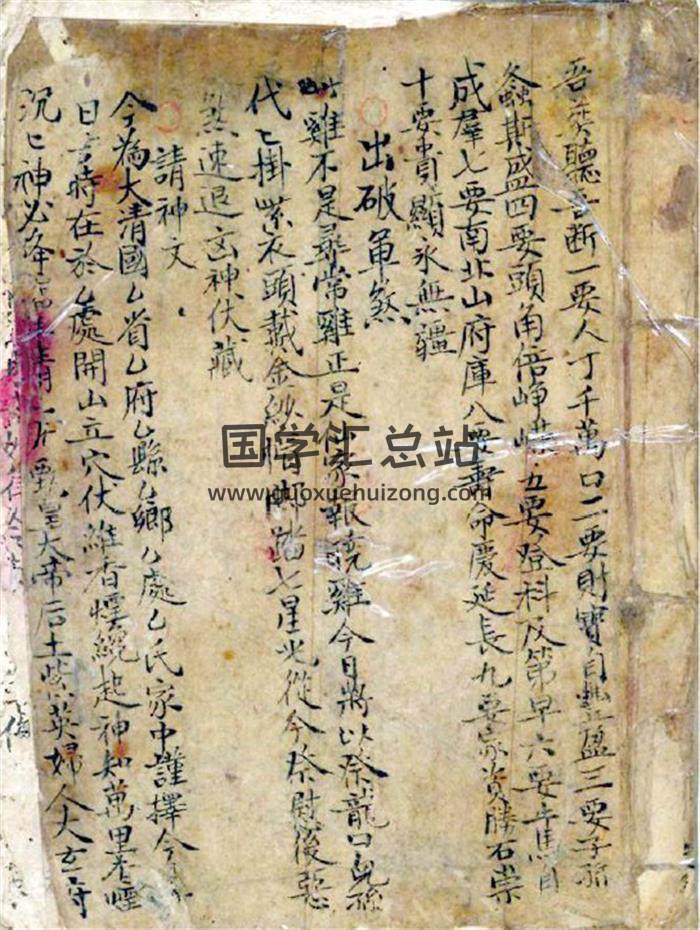 吾変聽吾断一要人丁千萬口二要財寶自豐盈三要子孫
螽斯盛四要頭角倍峥嶸五要登科及第早六要牛馬自
成羣七要南北山府庫八要壽命慶延長九要家資勝石崇
十要貴顯永無疆
出破軍煞
雞不是尋常雞正是家報曉雞今日將以祭龍口兒孫
代〻掛紫衣頭戴金紗帽脚踏七星光從今祭慰後惡
煞速退凶神伏藏
請神文
今為大清國厶省厶府厶縣厶鄉厶處厶氏家中謹擇今
日吉時在於厶處開山立穴伏維香煙繞起神知萬里香煙
沉〻神必降皇大帝后土紫英婦人大玄府
国学汇总站
www.guoxuehuizong.com